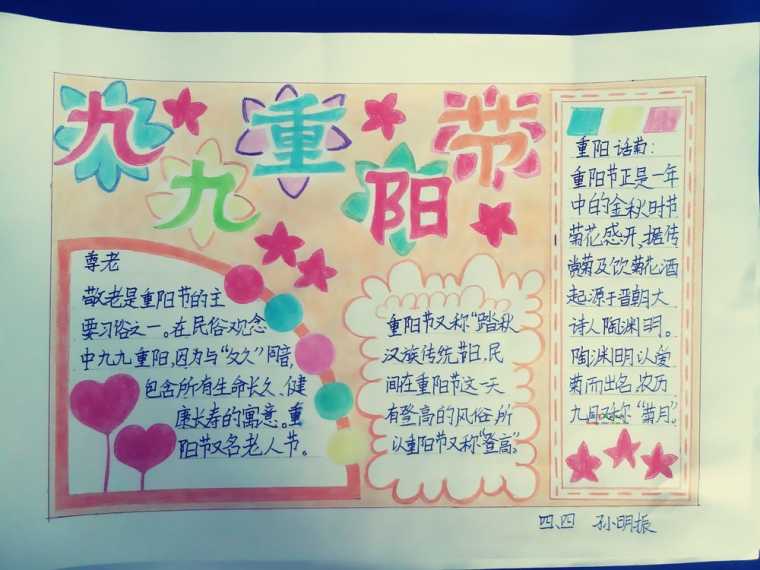 九九重阳节
尊老
敬老是重阳节的主
要习俗之一。在民俗观念
中九九重阳，因为与“久久”同音，
包含所有生命长久、健
康长寿的寓意。重
阳节又名老人节。
重阳节又称“踏秋
汉族传统节日，民
间在重阳节这一天
有登高的风俗，所
以重阳节又称“登高”。
重阳话菊：
重阳节正是一年
中的金秋时节
菊花感开，据传
赏菊及饮菊花酒
起源于晋朝大
诗人陶渊明。
陶渊明以爱
菊而出名，农历
九月又称“菊月”。
四、四 孙明振